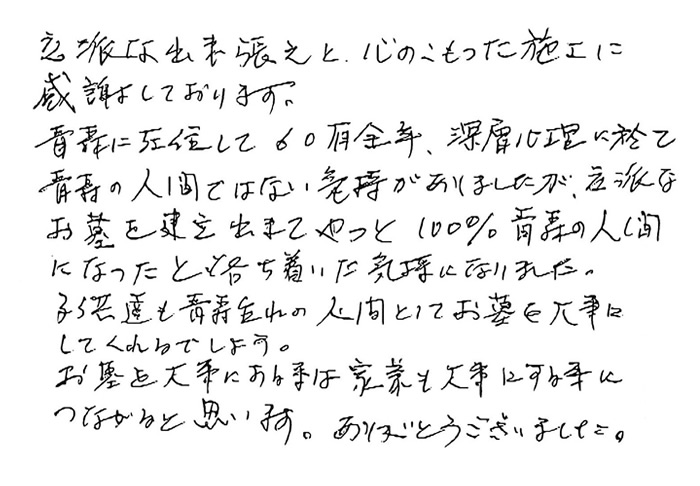 立派な出来張えと、心のこもった施工に
感謝しております。
青森に在住して60有余年、深層心理に於て
青森の人間ではない気持がありましたが、立派な
お墓を建立出来てやっと100%青森の人間
になったと落ち着いた気持になりました。
子供達も青森生れの人間としてお墓を大事に
してくれるでしょう。
お墓を大事にする事は家業も大事にする事に
つながると思います。ありがとうございました。